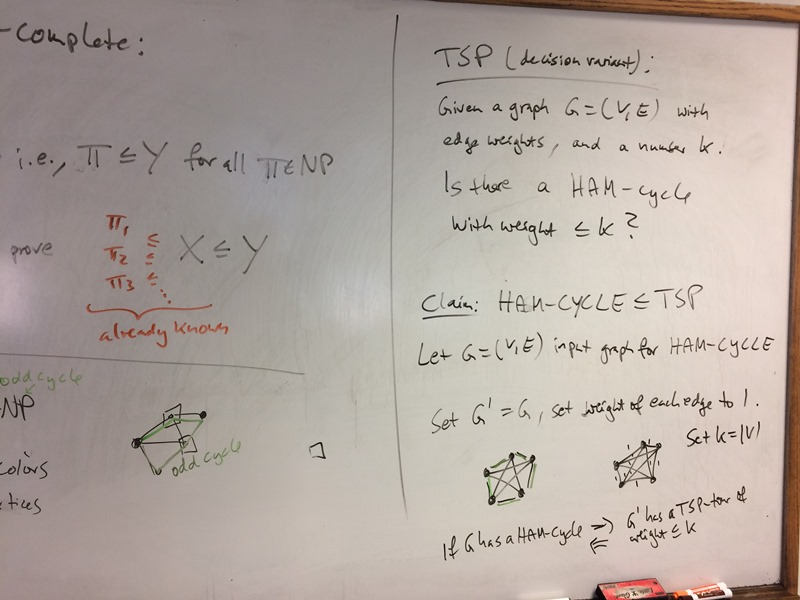 -complete:
i.e., Π ≤ Y for all Π ∈ NP
prove
Π1 ≤
Π2 ≤
Π3 ≤
X ≤ Y
already known
odd cycle
NP
colors
tices
odd cycle
TSP (decision variant):
Given a graph G=(V,E) with
edge weights, and a number k.
Is there a HAM-cycle
with weight ≤ k?
Claim: HAM-CYCLE ≤ TSP
Let G=(V,E) input graph for HAM-CYCLE
Set G' = G, set weight of each edge to 1.
Set k=|V|
If G has a HAM-cycle ⇒ G' has a TSP-tour of
⇐ weight ≤ k